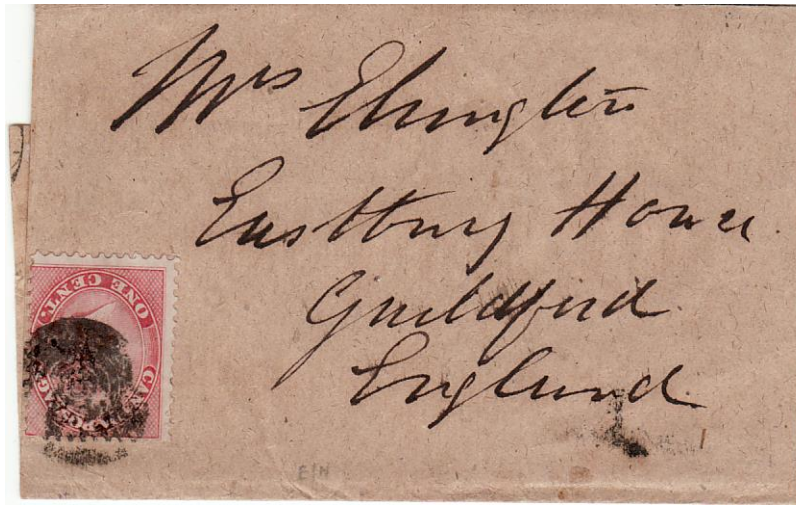 Mrs Elrington
Eastbury House
Guildford
England
ONE CENT.
CAN
TAGE
E/N